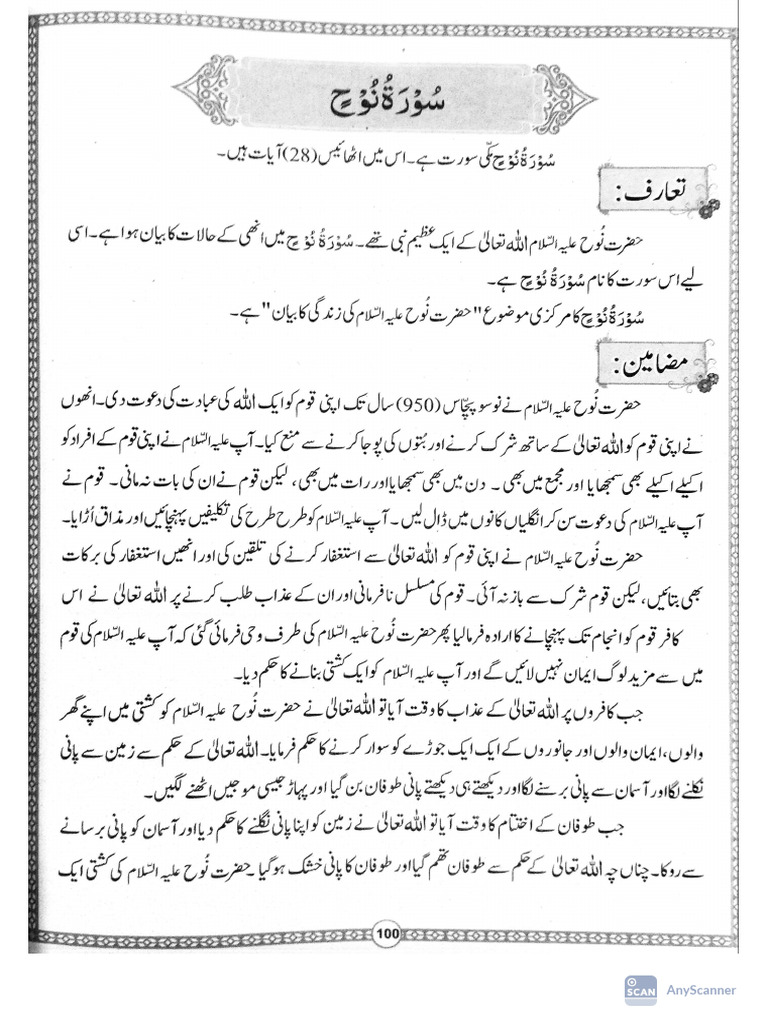 سُوْرَةُ نُوْحٍ
سُوْرَةُ نُوْحٍ مکّی سورت ہے۔ اس میں اٹھائیس (28) آیات ہیں۔
تعارف:
حضرت نُوح علیہ السّلام اللہ تعالیٰ کے ایک عظیم نبی تھے۔ سُوْرَةُ نُوْحٍ میں انھی کے حالات کا بیان ہوا ہے۔ اسی
لیے اس سورت کا نام سُوْرَةُ نُوْحٍ ہے۔
سُوْرَةُ نُوْحٍ کا مرکزی موضوع "حضرت نُوح علیہ السّلام کی زندگی کا بیان" ہے۔
مضامین:
حضرت نُوح علیہ السّلام نے نو سو پچّاس (950) سال تک اپنی قوم کو ایک اللہ کی عبادت کی دعوت دی۔ انھوں
نے اپنی قوم کو اللہ تعالیٰ کے ساتھ شرک کرنے اور بُتوں کی پوجا کرنے سے منع کیا۔ آپ علیہ السّلام نے اپنی قوم کے افراد کو
اکیلے اکیلے بھی سمجھایا اور مجمع میں بھی۔ دن میں بھی سمجھایا اور رات میں بھی، لیکن قوم نے ان کی بات نہ مانی۔ قوم نے
آپ علیہ السّلام کی دعوت سن کر انگلیاں کانوں میں ڈال لیں۔ آپ علیہ السّلام کو طرح طرح کی تکلیفیں پہنچائیں اور مذاق اُڑایا۔
حضرت نُوح علیہ السّلام نے اپنی قوم کو اللہ تعالیٰ سے استغفار کرنے کی تلقین کی اور انھیں استغفار کی برکات
بھی بتائیں، لیکن قوم شرک سے باز نہ آئی۔ قوم کی مسلسل نافرمانی اور ان کے عذاب طلب کرنے پر اللہ تعالیٰ نے اس
کافر قوم کو انجام تک پہنچانے کا ارادہ فرمالیا پھر حضرت نُوح علیہ السّلام کی طرف وحی فرمائی گئی کہ آپ علیہ السّلام کی قوم
میں سے مزید لوگ ایمان نہیں لائیں گے اور آپ علیہ السّلام کو ایک کشتی بنانے کا حکم دیا۔
جب کافروں پر اللہ تعالیٰ کے عذاب کا وقت آیا تو اللہ تعالیٰ نے حضرت نُوح علیہ السّلام کو کشتی میں اپنے گھر
والوں، ایمان والوں اور جانوروں کے ایک ایک جوڑے کو سوار کرنے کا حکم فرمایا۔ اللہ تعالیٰ کے حکم سے زمین سے پانی
نکلنے لگا اور آسمان سے پانی برسنے لگا اور دیکھتے ہی دیکھتے پانی طوفان بن گیا اور پہاڑ جیسی موجیں اٹھنے لگیں۔
جب طوفان کے اختتام کا وقت آیا تو اللہ تعالیٰ نے زمین کو اپنا پانی نگلنے کا حکم دیا اور آسمان کو پانی برسانے
سے روکا۔ چناں چہ اللہ تعالیٰ کے حکم سے طوفان تھم گیا اور طوفان کا پانی خشک ہو گیا۔ حضرت نُوح علیہ السّلام کی کشتی ایک
100
SCAN AnyScanner